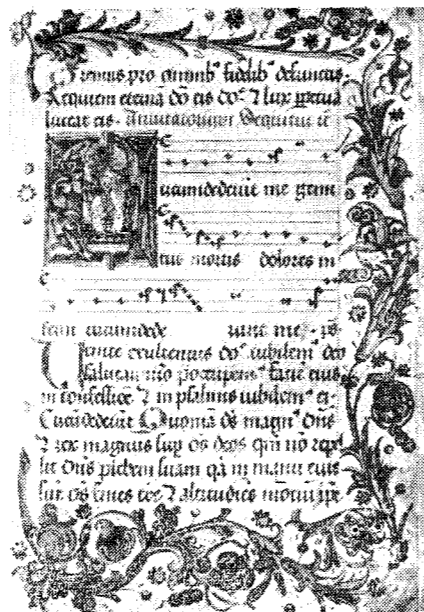 Oremus pro omnib' fidelib' defunctis.
Requiem eternā dō eis dō' ⁊ lux ppetua
luceat eis. Invitatorium Sequitur
ircumdederūt me gemi
tus mortis dolores in
ferni circumdede runt me. ps
enite exultemus dō' iubilem' deo
salutari nrō preocupem' faciē eius
in confessiōe ⁊ in psalmis iubilem' ei.
Circumdederūt Quoniā ds magn' dns
⁊ rex magnus sup os deos qm nō repel
let dns plebem suam qa in manu eius
sūt os fines ⁊ altitudines